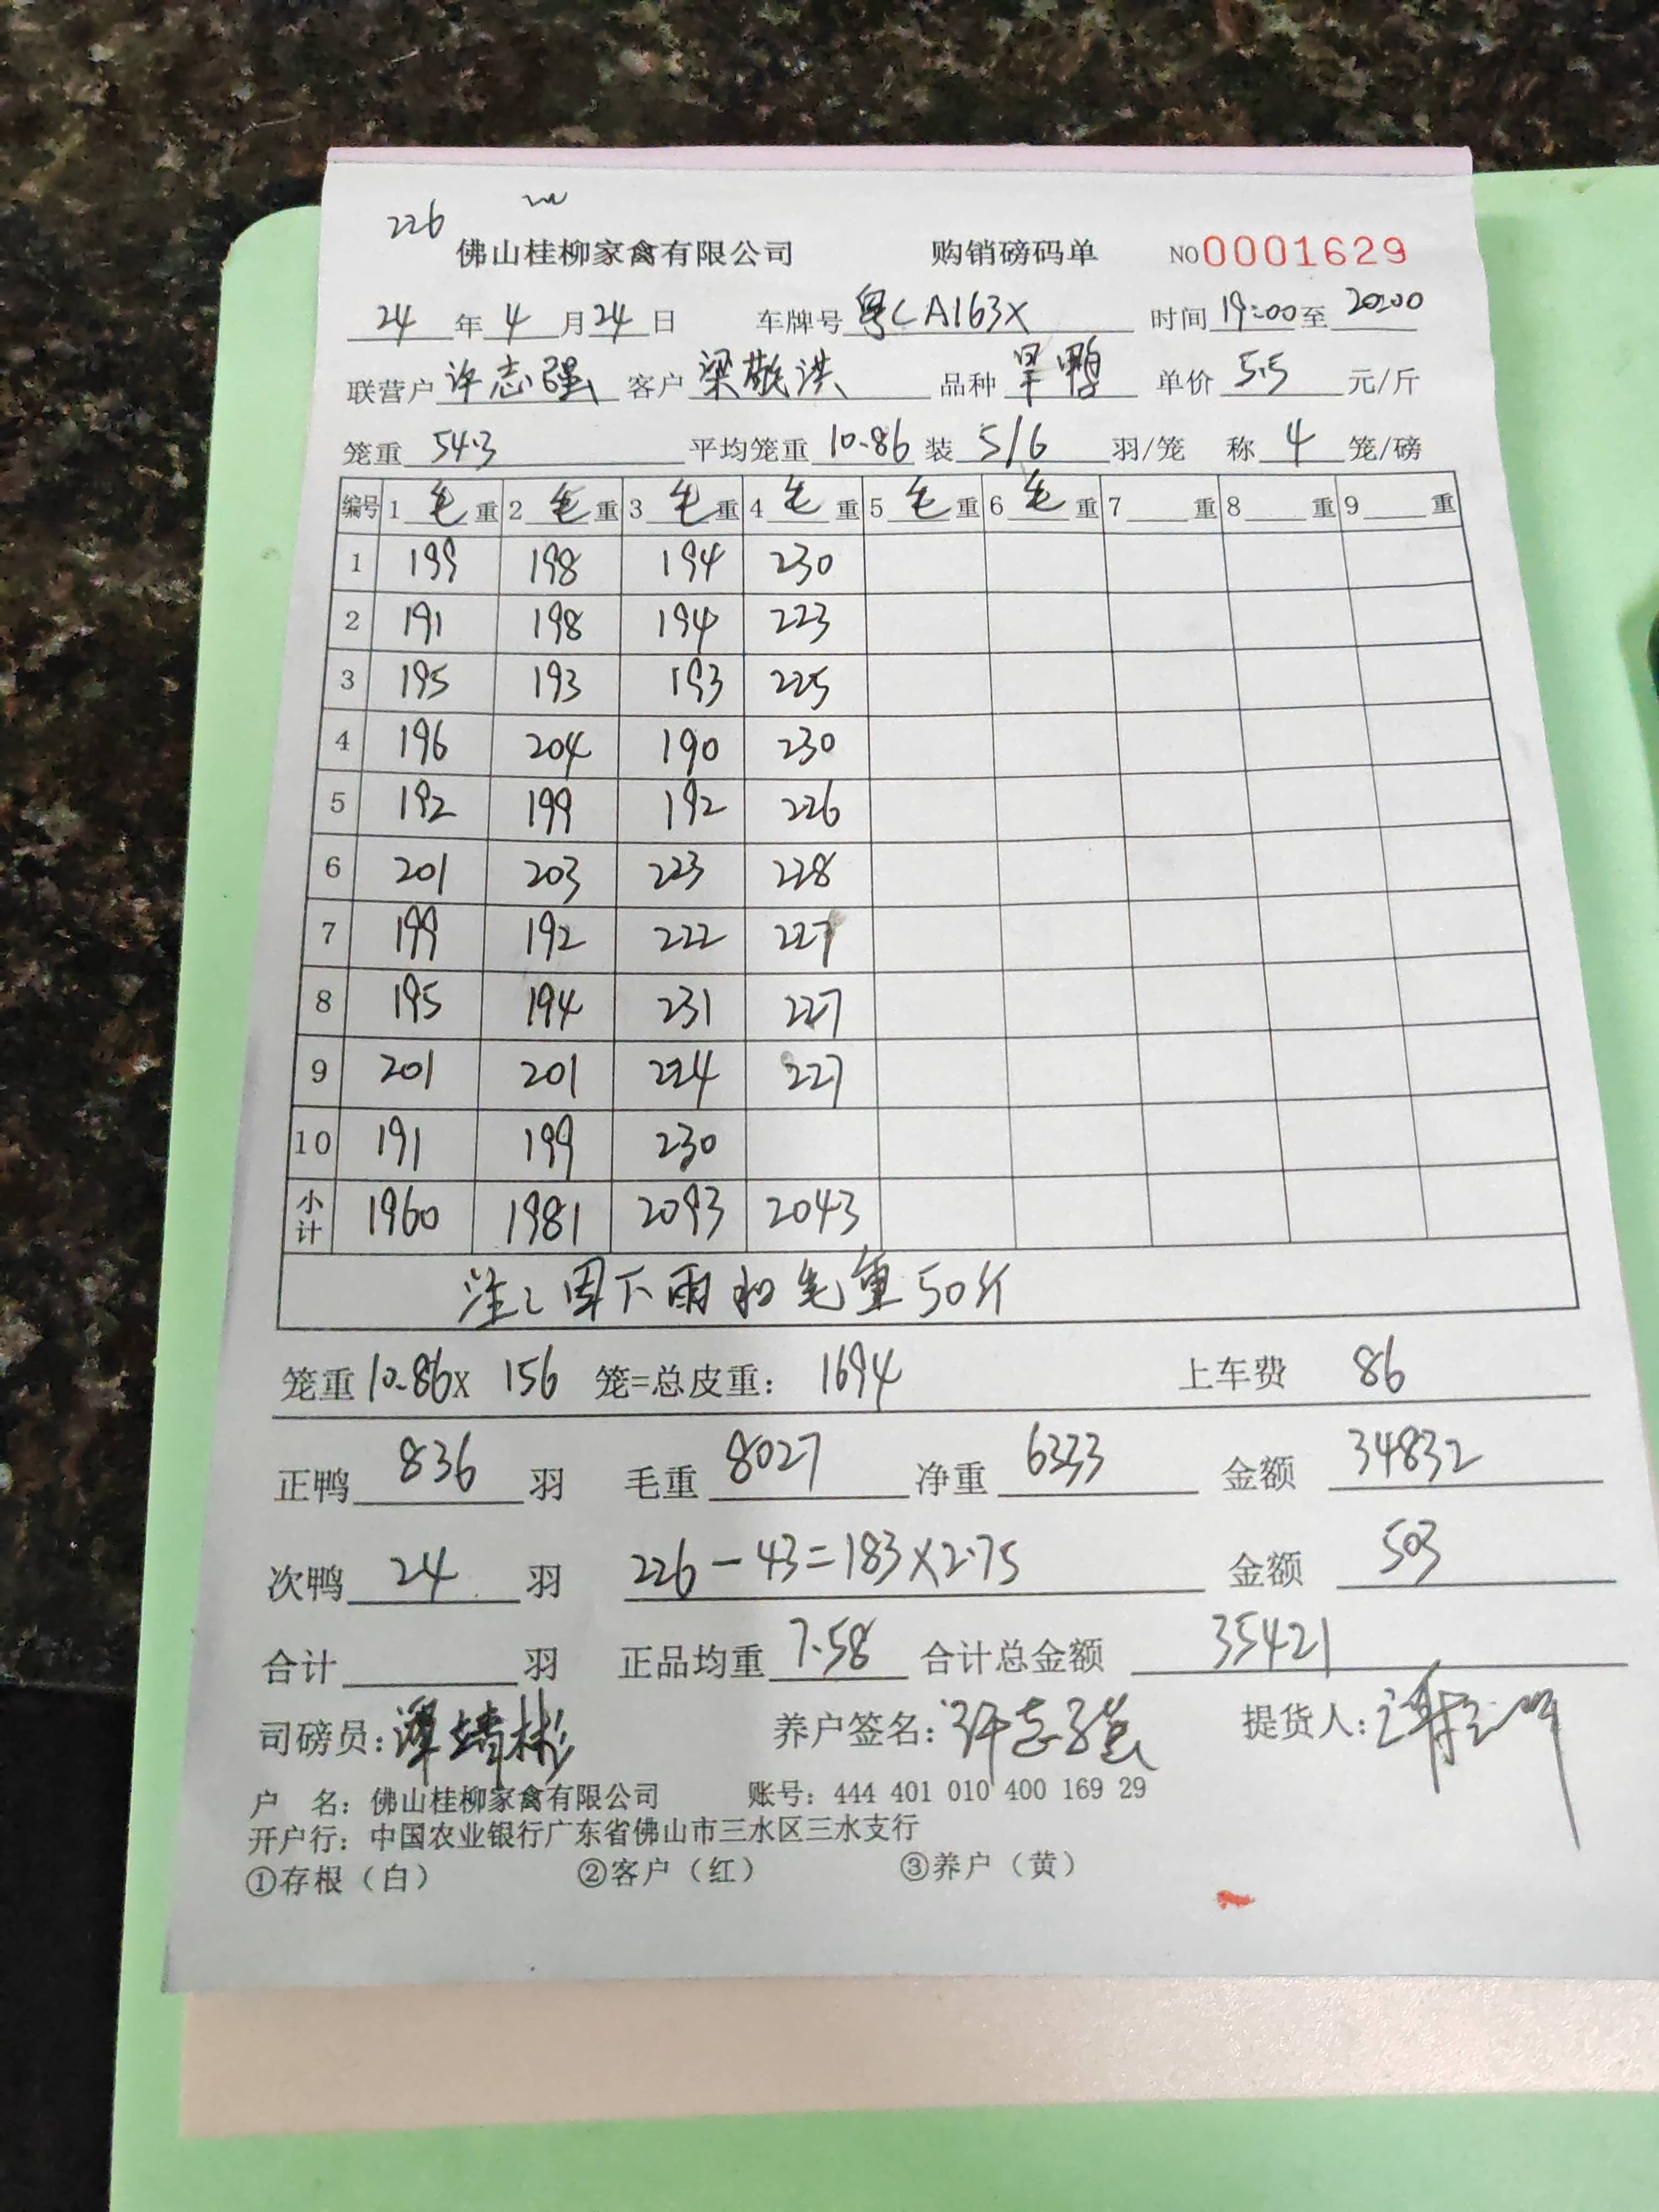 226
佛山桂柳家禽有限公司 购销磅码单 NO 0001629
24 年 4 月 24 日 车牌号 粤CA163X 时间 19:00 至 20:00
联营户 许志强 客户 梁敬洪 品种 旱鸭 单价 5.5 元/斤
笼重 54.3 平均笼重 10.86 装 5/6 羽/笼 称 4 笼/磅
编号 1 毛 重 2 毛 重 3 毛 重 4 毛 重 5 毛 重 6 毛 重 7 重 8 重 9 重
1 199 198 194 230
2 191 198 194 223
3 195 193 193 225
4 196 204 190 230
5 192 199 192 226
6 201 203 223 228
7 199 192 222 227
8 195 194 231 227
9 201 201 224 227
10 191 199 230
小计 1960 1981 2093 2043
注:因下雨扣毛重50斤
笼重 10.86 x 156 笼=总皮重: 1694 上车费 86
正鸭 836 羽 毛重 8027 净重 6333 金额 34832
次鸭 24 羽 226-43=183×2.75 金额 503
合计 羽 正品均重 7.58 合计总金额 35421
司磅员: 养户签名:许志强 提货人:
户 名:佛山桂柳家禽有限公司 账号:444 401 010 400 169 29
开户行:中国农业银行广东省佛山市三水区三水支行
①存根(白) ②客户(红) ③养户(黄)